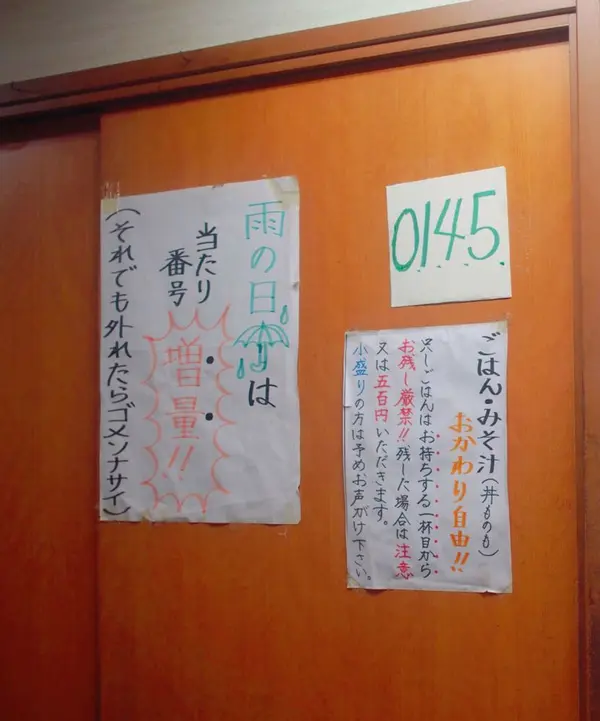 雨の日は
当たり
番号
増量!!
(それでも外れたらゴメンナサイ)
0145
ごはん・みそ汁(丼ものも)
おかわり自由!!
只しごはんはお持ちする一杯目から
お残し厳禁!!残した場合は注意
又は五百円いただきます。
小盛りの方は予めお声がけ下さい。